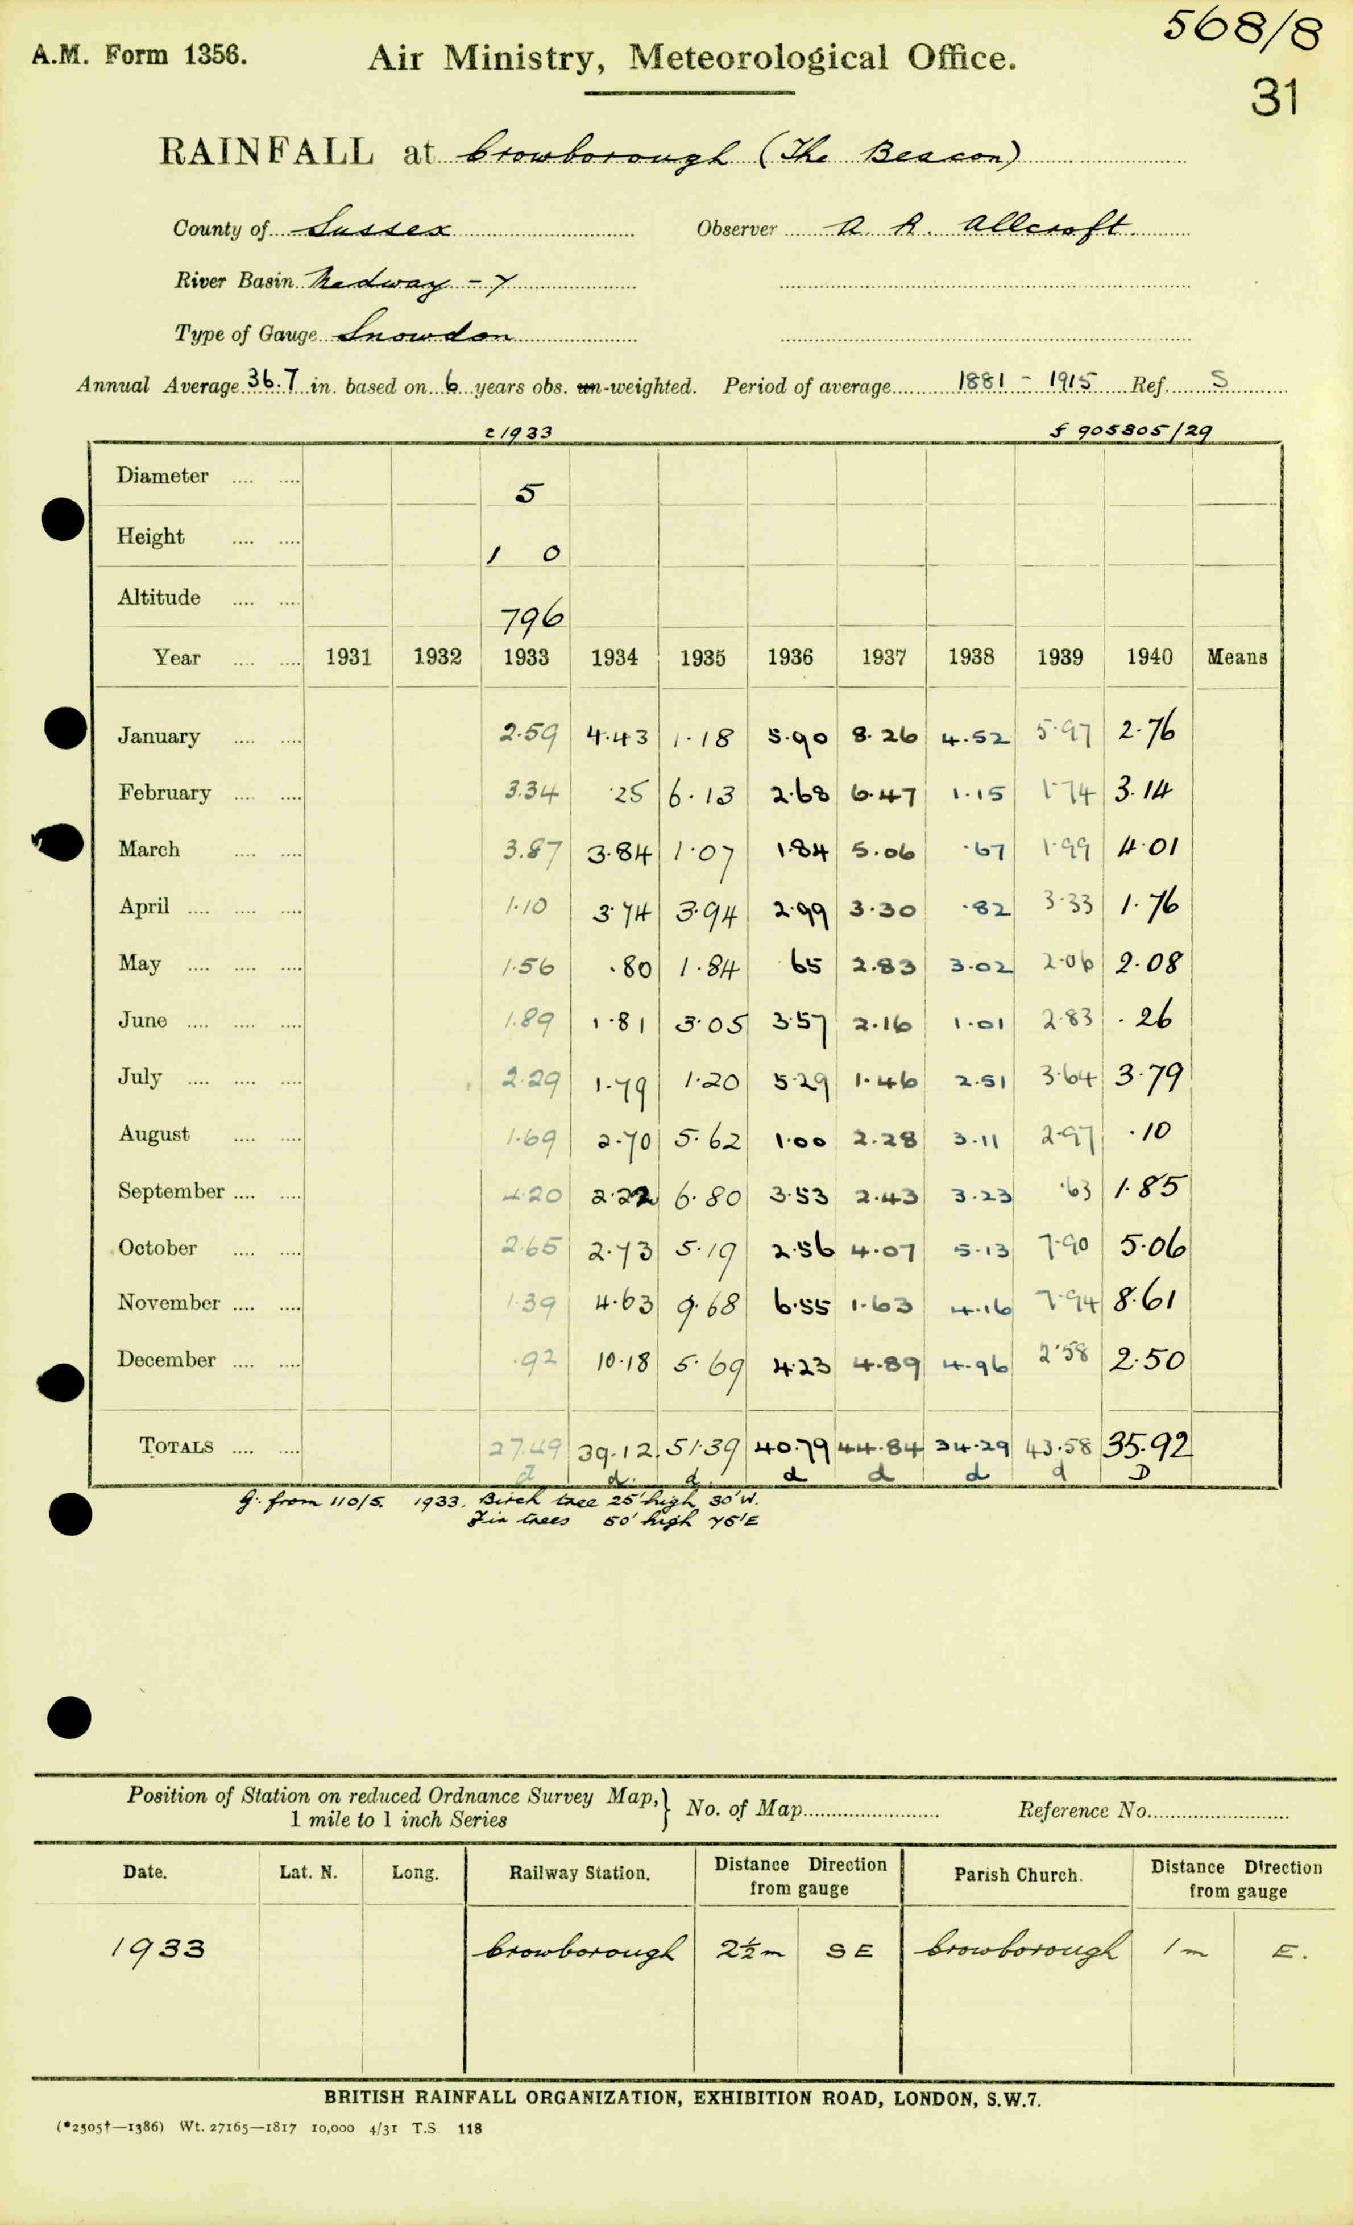 568/8
A.M. Form 1356. Air Ministry, Meteorological Office.
31
RAINFALL at Crowborough (The Beacon)
County of Sussex Observer A. R. Allcroft.
River Basin Medway - 7
Type of Gauge Snowdon
Annual Average 36.7 in. based on 6 years obs. un-weighted. Period of average 1881 - 1915 Ref. S
c 1933 f 905805/29
Diameter .... .... 5
Height .... .... 1 0
Altitude .... .... 796
Year .... .... 1931 1932 1933 1934 1935 1936 1937 1938 1939 1940 Means
January .... .... 2.59 4.43 1.18 5.90 8.26 4.52 5.97 2.76
February .... .... 3.34 .25 6.13 2.68 6.47 1.15 1.74 3.14
March .... .... 3.87 3.84 1.07 1.84 5.06 .67 1.99 4.01
April .... .... .... 1.10 3.74 3.94 2.99 3.30 .82 3.33 1.76
May .... .... .... 1.56 .80 1.84 .65 2.83 3.02 2.06 2.08
June .... .... .... 1.89 1.81 3.05 3.57 2.16 1.01 2.83 .26
July .... .... .... 2.29 1.79 1.20 5.29 1.46 2.51 3.64 3.79
August .... .... 1.69 2.70 5.62 1.00 2.28 3.11 2.97 .10
September .... .... 4.20 2.22 6.80 3.53 2.43 3.23 .63 1.85
October .... .... 2.65 2.73 5.19 2.56 4.07 5.13 7.90 5.06
November .... .... 1.39 4.63 9.68 6.55 1.63 4.16 7.94 8.61
December .... .... .92 10.18 5.69 4.23 4.89 4.96 2.58 2.50
TOTALS .... .... 27.49 39.12 51.39 40.79 44.84 34.29 43.58 35.92
d d. d. d d d d D
G. from 110/5. 1933. Birch tree 25' high 30' W.
Fir trees 50' high 75' E
Position of Station on reduced Ordnance Survey Map,} No. of Map Reference No.
1 mile to 1 inch Series
Date. Lat. N. Long. Railway Station. Distance Direction from gauge Parish Church. Distance Direction from gauge
1933 Crowborough 2½ m SE Crowborough 1 m E.
BRITISH RAINFALL ORGANIZATION, EXHIBITION ROAD, LONDON, S.W.7.
(*2505†—1386) Wt. 27165—1817 10,000 4/31 T.S. 118